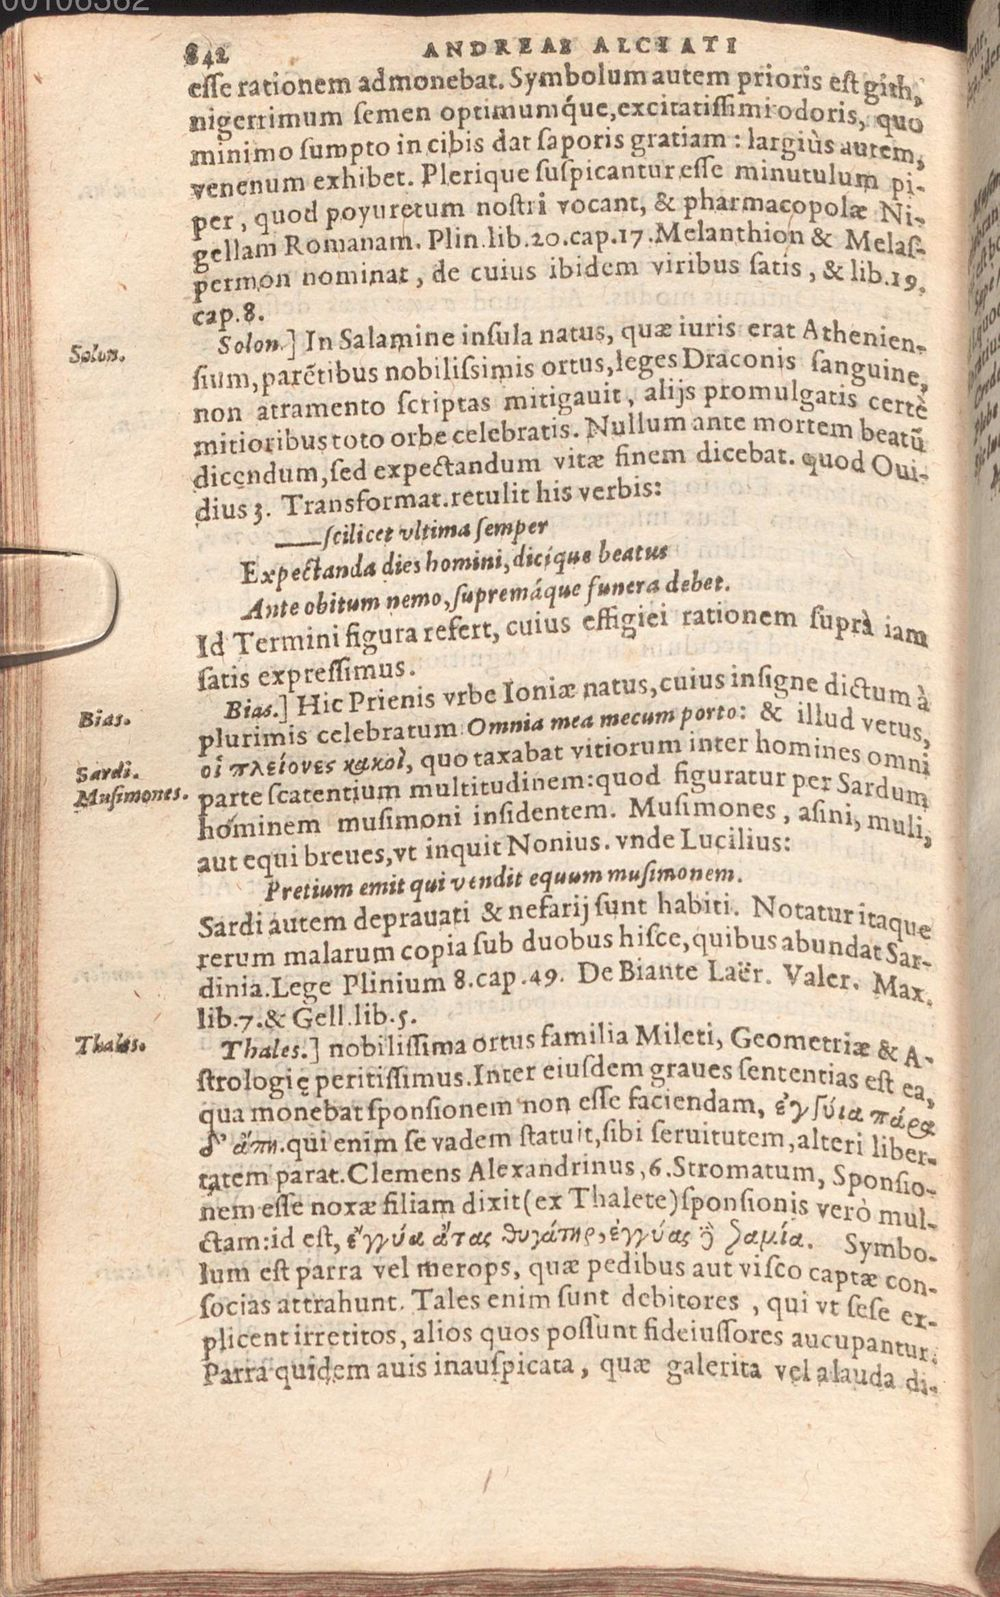 00106362
842
ANDREAE ALCIATI
esse rationem admonebat. Symbolum autem prioris est gith,
nigerrimum semen optimumq́ue, excitatissimi odoris, quo
minimo sumpto in cibis dat saporis gratiam : largiùs autem,
venenum exhibet. Plerique suspicantur esse minutulum pi-
per, quod poyuretum nostri vocant, & pharmacopolæ Ni-
gellam Romanam. Plin. lib. 20. cap. 17. Melanthion & Melas-
permon nominat, de cuius ibidem viribus satis, & lib. 19.
cap. 8.
Solon.
Solon.] In Salamine insula natus, quæ iuris erat Athenien-
sium, parẽtibus nobilissimis ortus, leges Draconis sanguine,
non atramento scriptas mitigauit, alijs promulgatis certè
mitioribus toto orbe celebratis. Nullum ante mortem beatũ
dicendum, sed expectandum vitæ finem dicebat. quod Oui-
dius 3. Transformat. retulit his verbis:
—scilicet vltima semper
Expectanda dies homini, diciq́ue beatus
Ante obitum nemo, supremáque funera debet.
Id Termini figura refert, cuius effigiei rationem suprà iam
satis expressimus.
Bias.
Bias.] Hic Prienis vrbe Ioniæ natus, cuius insigne dictum à
plurimis celebratum Omnia mea mecum porto: & illud vetus,
οἱ πλείονες κακοὶ, quo taxabat vitiorum inter homines omni
Sardi.
Musimones.
parte scatentium multitudinem: quod figuratur per Sardum
hominem musimoni insidentem. Musimones, asini, muli,
aut equi breues, vt inquit Nonius. vnde Lucilius:
Pretium emit qui vendit equum musimonem.
Sardi autem deprauati & nefarij sunt habiti. Notatur itaque
rerum malarum copia sub duobus hisce, quibus abundat Sar-
dinia. Lege Plinium 8. cap. 49. De Biante Laër. Valer. Max.
lib. 7. & Gell. lib. 5.
Thales.
Thales.] nobilissima ortus familia Mileti, Geometriæ & A-
strologię peritissimus. Inter eiusdem graues sententias est ea,
qua monebat sponsionem non esse faciendam, ἐγγύα πάρα
δ' ἄτη. qui enim se vadem statuit, sibi seruitutem, alteri liber-
tatem parat. Clemens Alexandrinus, 6. Stromatum, Sponsio-
nem esse noxæ filiam dixit (ex Thalete) sponsionis verò mul-
ctam: id est, ἐγγύα ἄτας θυγάτηρ, ἐγγύας δὲ ζαμία. Symbo-
lum est parra vel merops, quæ pedibus aut visco captæ con-
socias attrahunt. Tales enim sunt debitores, qui vt sese ex-
plicent irretitos, alios quos possunt fideiussores aucupantur.
Parra quidem auis inauspicata, quæ galerita vel alauda di-